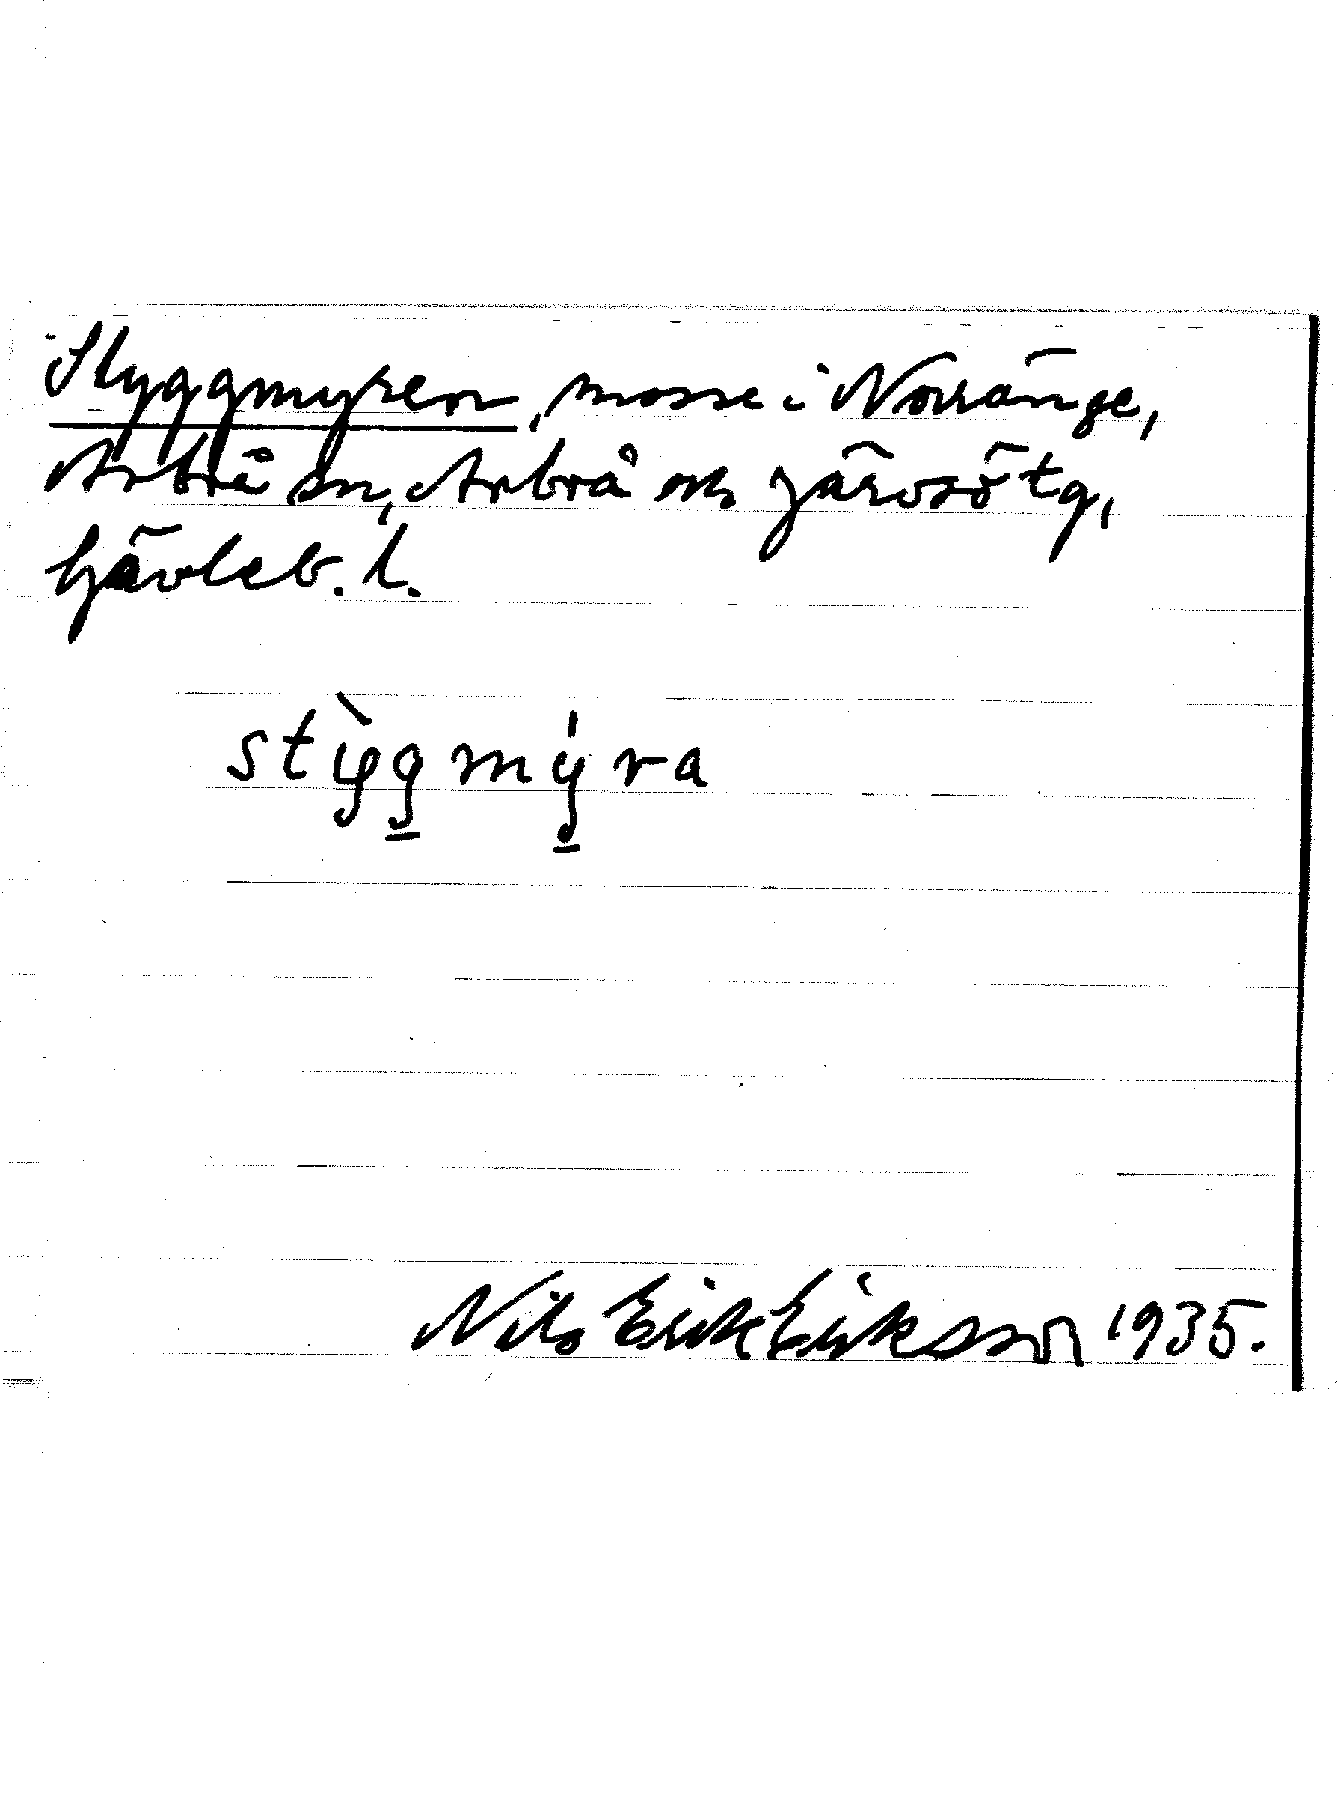 Styggmyren, mosse i Norränge,
Arbrå sn, Arbrå och Järvsö tg,
Gävleb. l.
stỳg̲mý̲ra
Nils Erik Eriksson 1935.